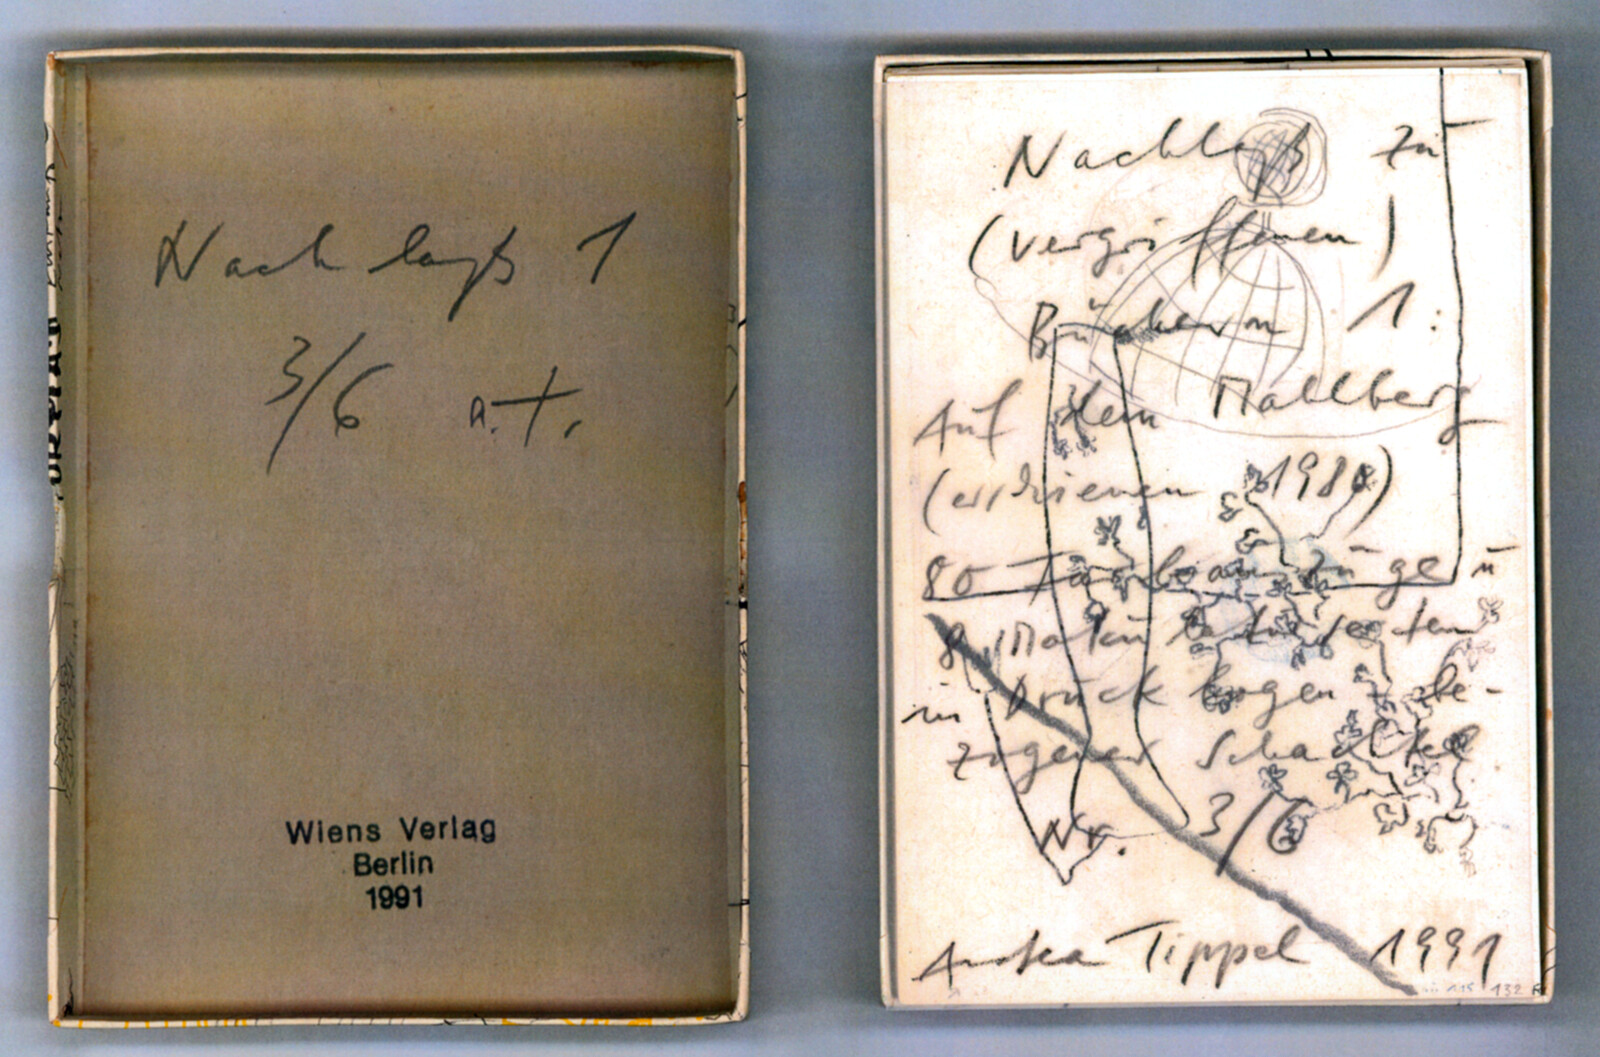 Nachlaß 1
3/6 a.t.
Wiens Verlag
Berlin
1991
Nachlaß zu
(vergriffenen)
Büchern 1:
Auf dem Mahlberg
(erschienen 1980)
80 Farb zü ge u
8
in Druck bogen be-
zogener Schachtel
Nr. 3/6
Tippel 1991
132